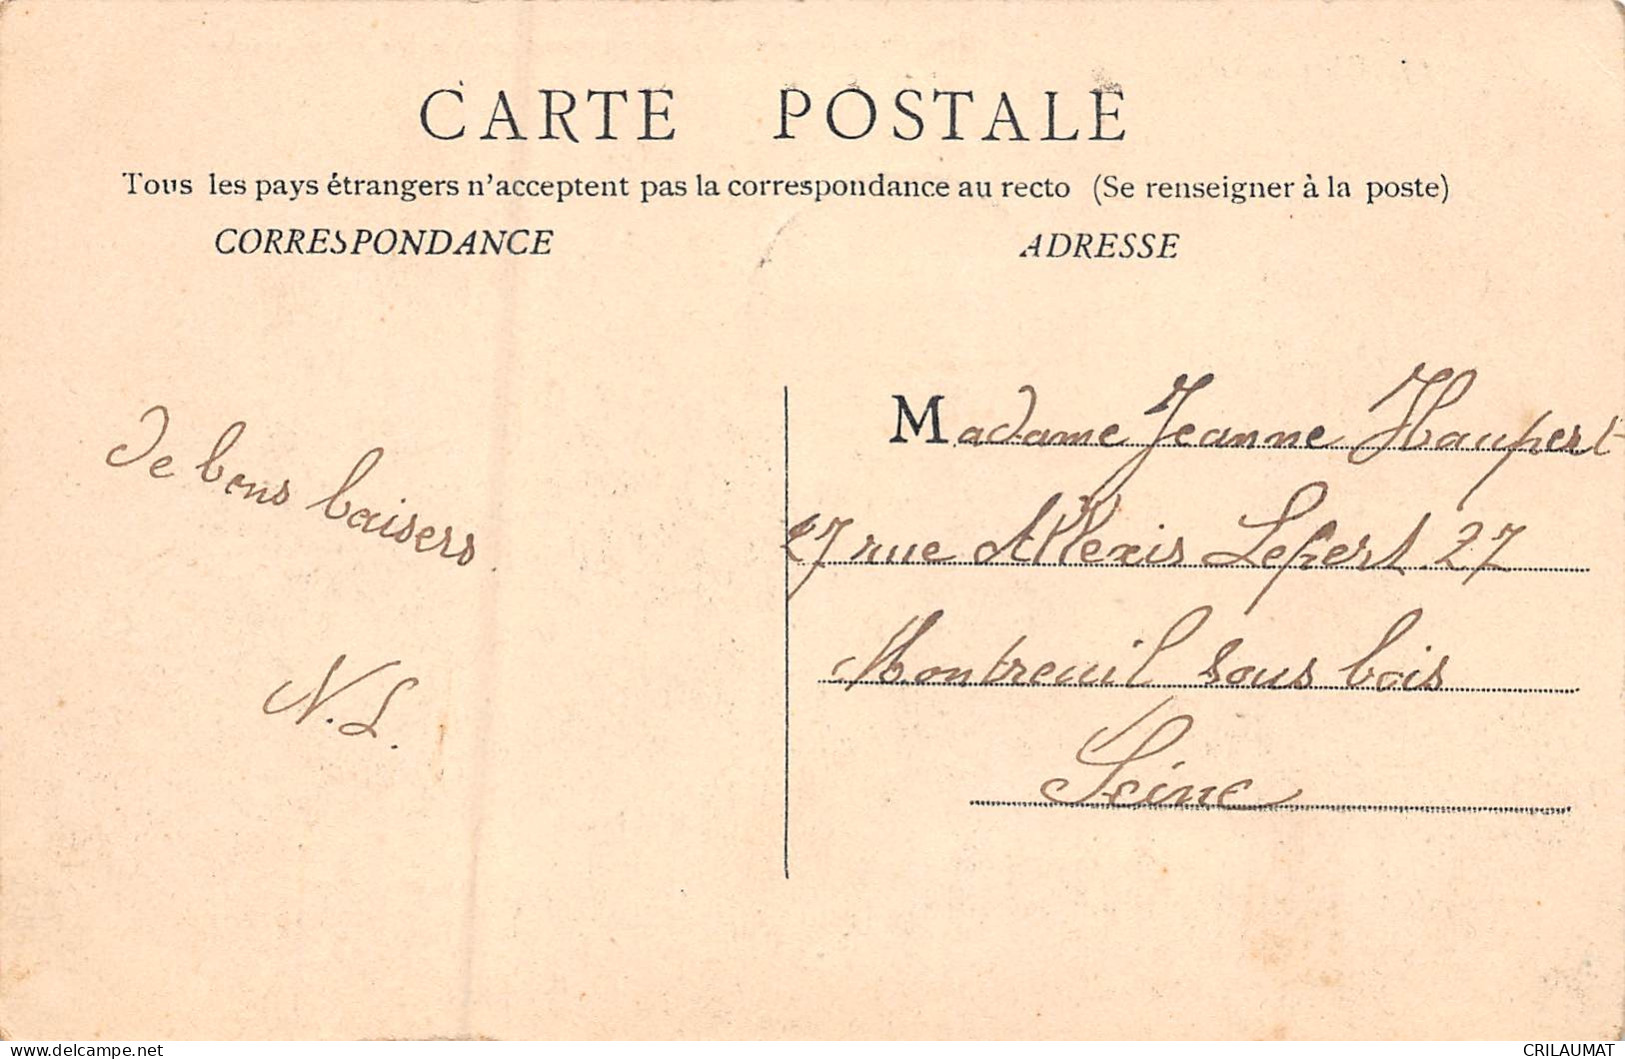 CARTE POSTALE
Tous les pays étrangers n'acceptent pas la correspondance au recto (Se renseigner à la poste)
CORRESPONDANCE
ADRESSE
De bons baisers
N. L.
Madame Jeanne Haupert
27 rue Allexis Lepert 27
Montreuil sous bois
Seine
delcampe.net
CRILAUMAT